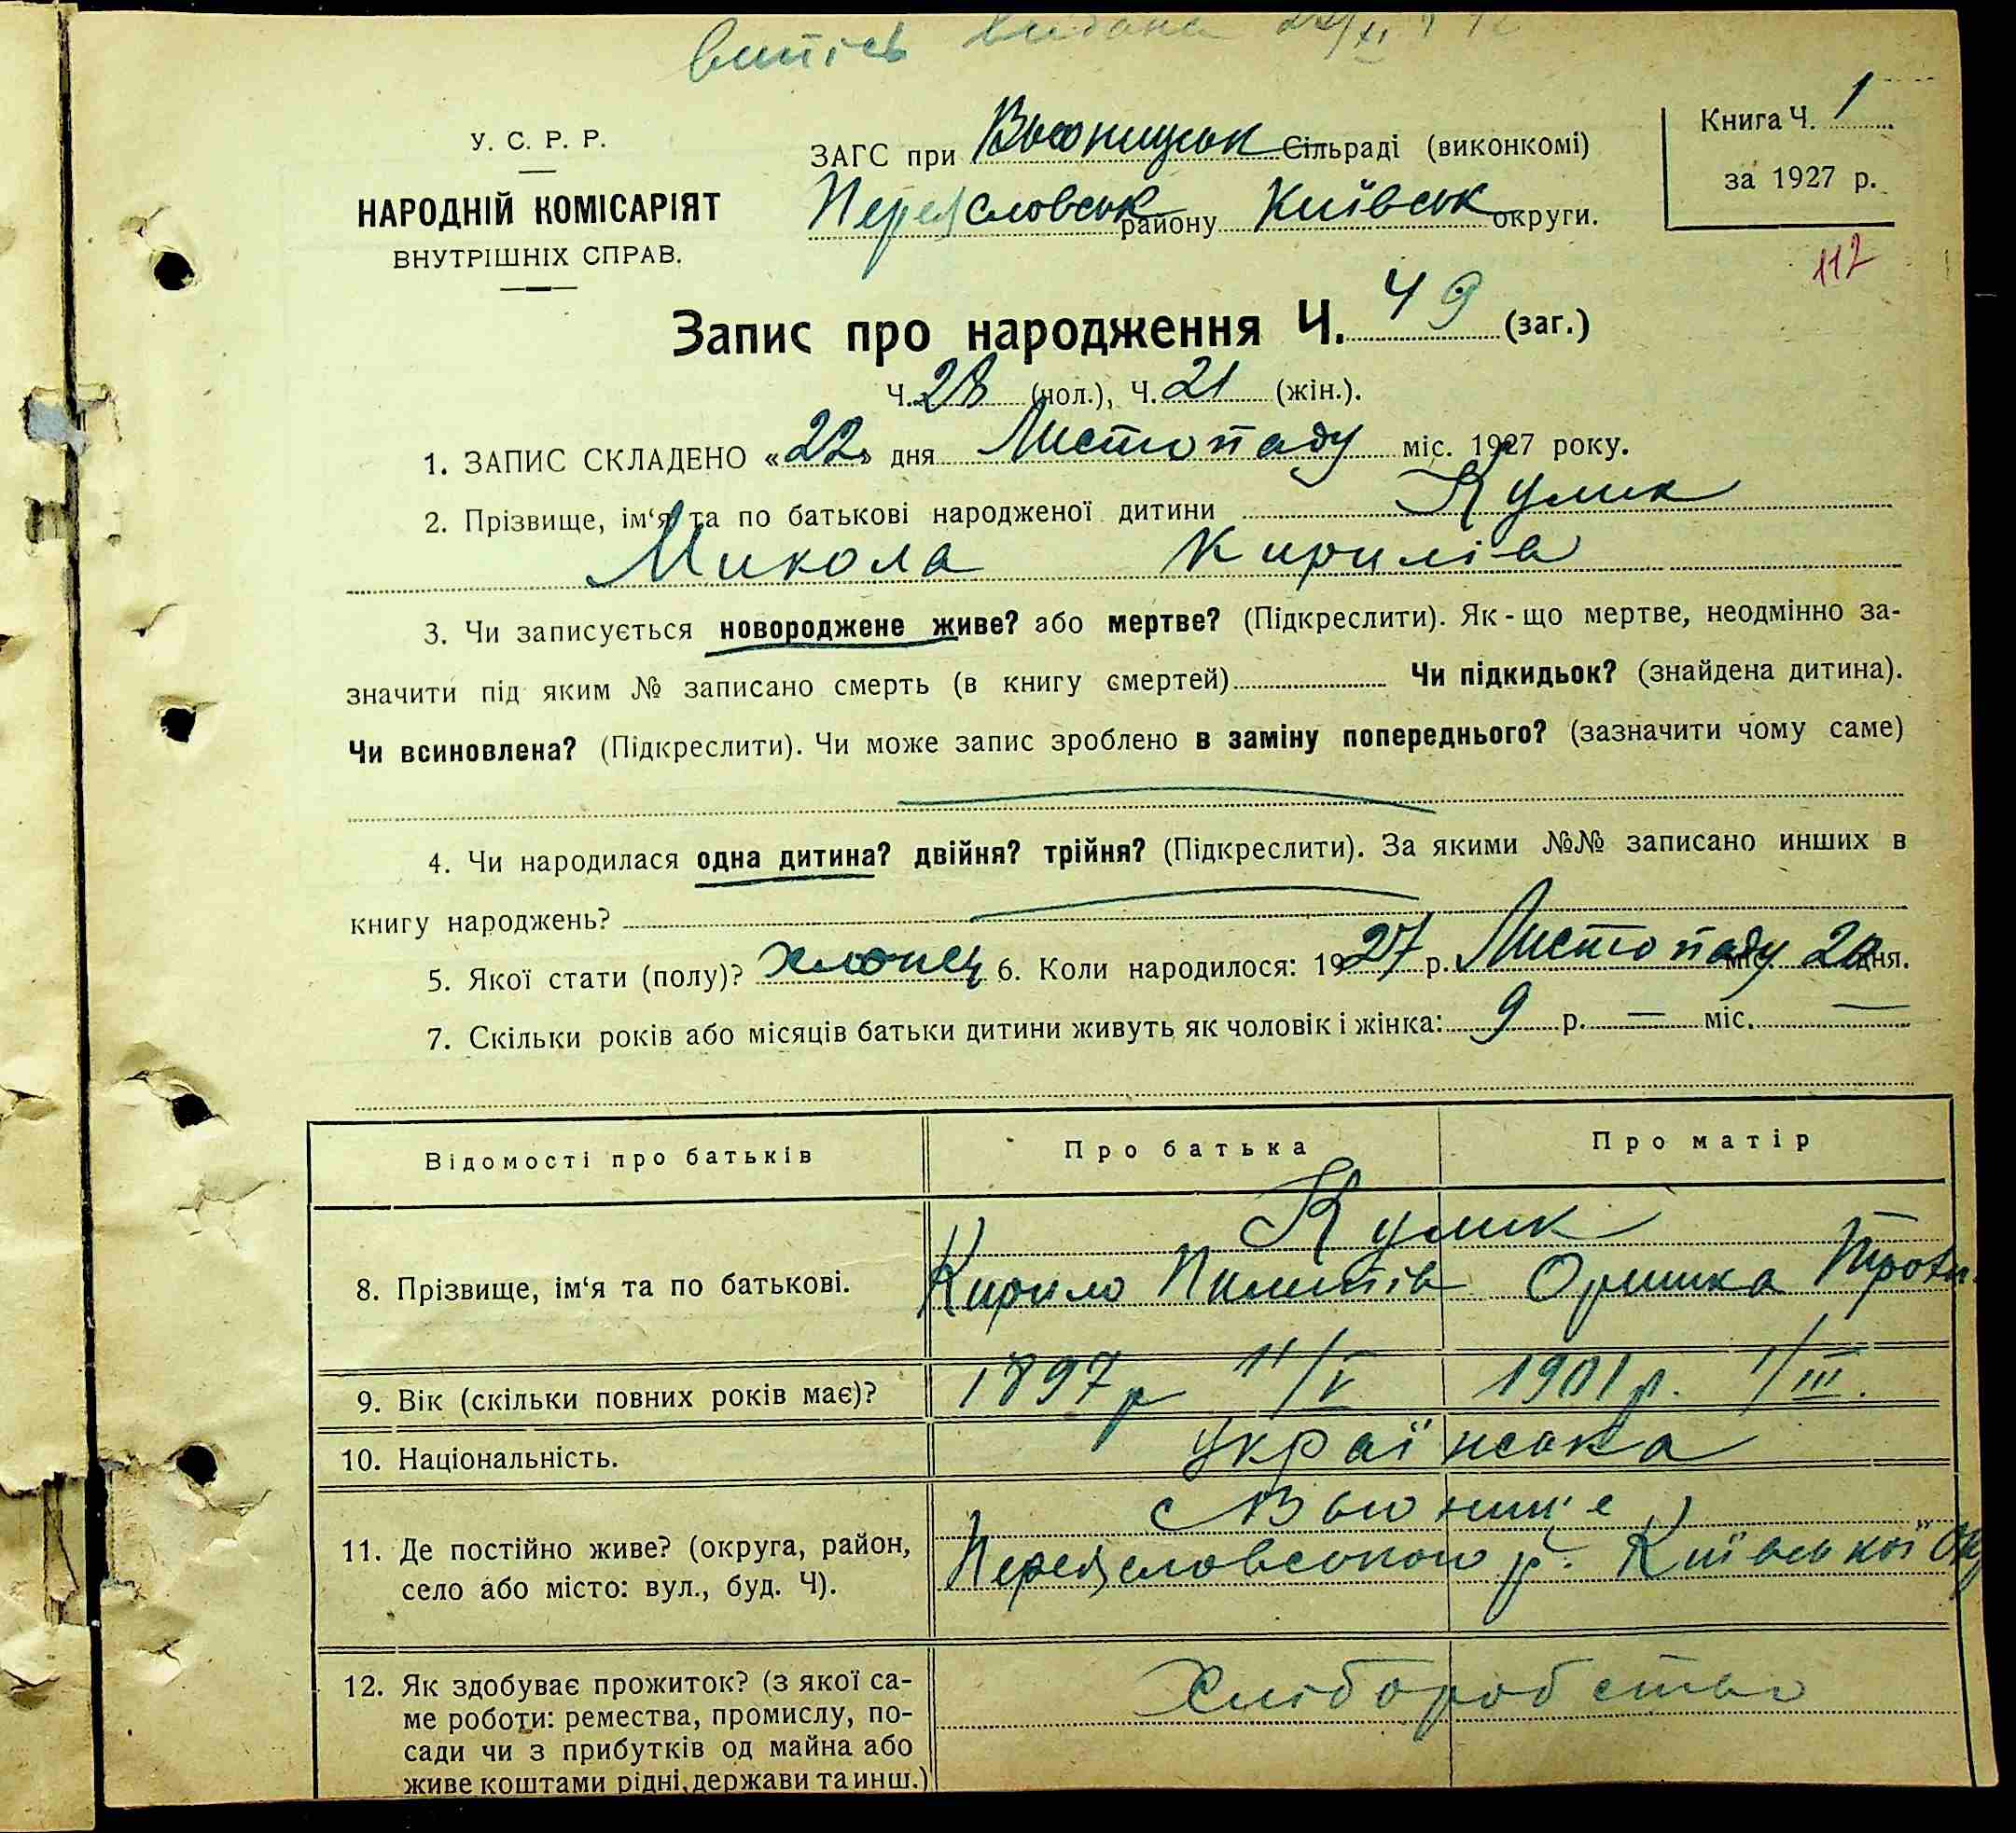 випісь видана
У. С. Р. Р.
НАРОДНІЙ КОМІСАРІЯТ
ВНУТРІШНІХ СПРАВ.
ЗАГС при Вьюницьк Сільраді (виконкомі)
Переяславськ району Київськ округи.
Книга Ч. 1
за 1927 р.
112
Запис про народження Ч. 49 (заг.)
Ч. 28 (чол.), Ч. 21 (жін.).
1. ЗАПИС СКЛАДЕНО «22» дня Листопаду міс. 1927 року.
2. Прізвище, ім‘я та по батькові народженої дитини Кулик
Микола Кирилів
3. Чи записується новороджене живе? або мертве? (Підкреслити). Як-що мертве, неодмінно за-
значити під яким № записано смерть (в книгу смертей) Чи підкидьок? (знайдена дитина).
Чи всиновлена? (Підкреслити). Чи може запис зроблено в заміну попереднього? (зазначити чому саме)
4. Чи народилася одна дитина? двійня? трійня? (Підкреслити). За якими №№ записано инших в
книгу народжень?
5. Якої стати (полу)? хлопець 6. Коли народилося: 1927 р. Листопаду міс. дня.
7. Скільки років або місяців батьки дитини живуть як чоловік і жінка: 9 р. — міс. —
Відомості про батьків Про батька Про матір
Кулик
8. Прізвище, ім‘я та по батькові. Кирило Пилипів Оришка
9. Вік (скільки повних років має)? 1897 р 11/V 1901 р. 1/III.
10. Національність. Українська
с Вьюнище
11. Де постійно живе? (округа, район, Переясловського р. Київської Ок
село або місто: вул., буд. Ч).
12. Як здобуває прожиток? (з якої са- Хліборобство
ме роботи: ремества, промислу, по-
сади чи з прибутків од майна або
живе коштами рідні, держави та инш.)